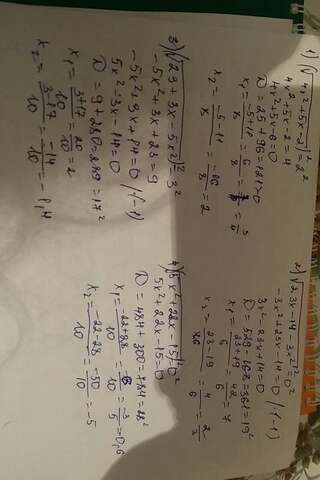 1) √(4x²+5x-2)² = 2²
4x²+5x-2=4
4x²+5x-6=0
D=25+96=121>0
x₁ = (-5+11)/8 = 6/8 = 3/4
x₂ = (-5-11)/8 = -16/8 = 2
2) √(23x-14-3x²)² = 0²
-3x²+23x-14=0 /(-1)
3x²-23x+14=0
D=529-168=361=19²
x₁ = (23+19)/6 = 42/6 = 7
x₂ = (23-19)/6 = 4/6 = 2/3
3) √(23+3x-5x²)² = 3²
-5x²+3x+23=9
-5x²+3x+14=0 /(-1)
5x²-3x-14=0
D=9+280=289=17²
x₁ = (3+17)/10 = 20/10 = 2
x₂ = (3-17)/10 = -14/10 = -1,4
4) √(5x²+22x-15)² = 0²
5x²+22x-15=0
D=484+300=784=28²
x₁ = (-22+28)/10 = 6/10 = 3/5 = 0,6
x₂ = (-22-28)/10 = -50/10 = -5